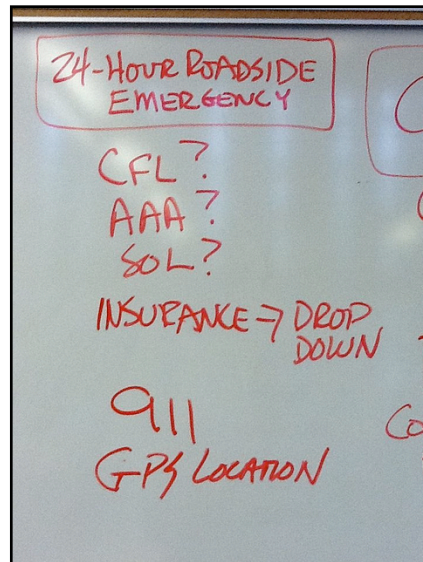 24-HOUR ROADSIDE
EMERGENCY
CFL?
AAA?
SOL?
INSURANCE → DROP
DOWN
911
GPS LOCATION